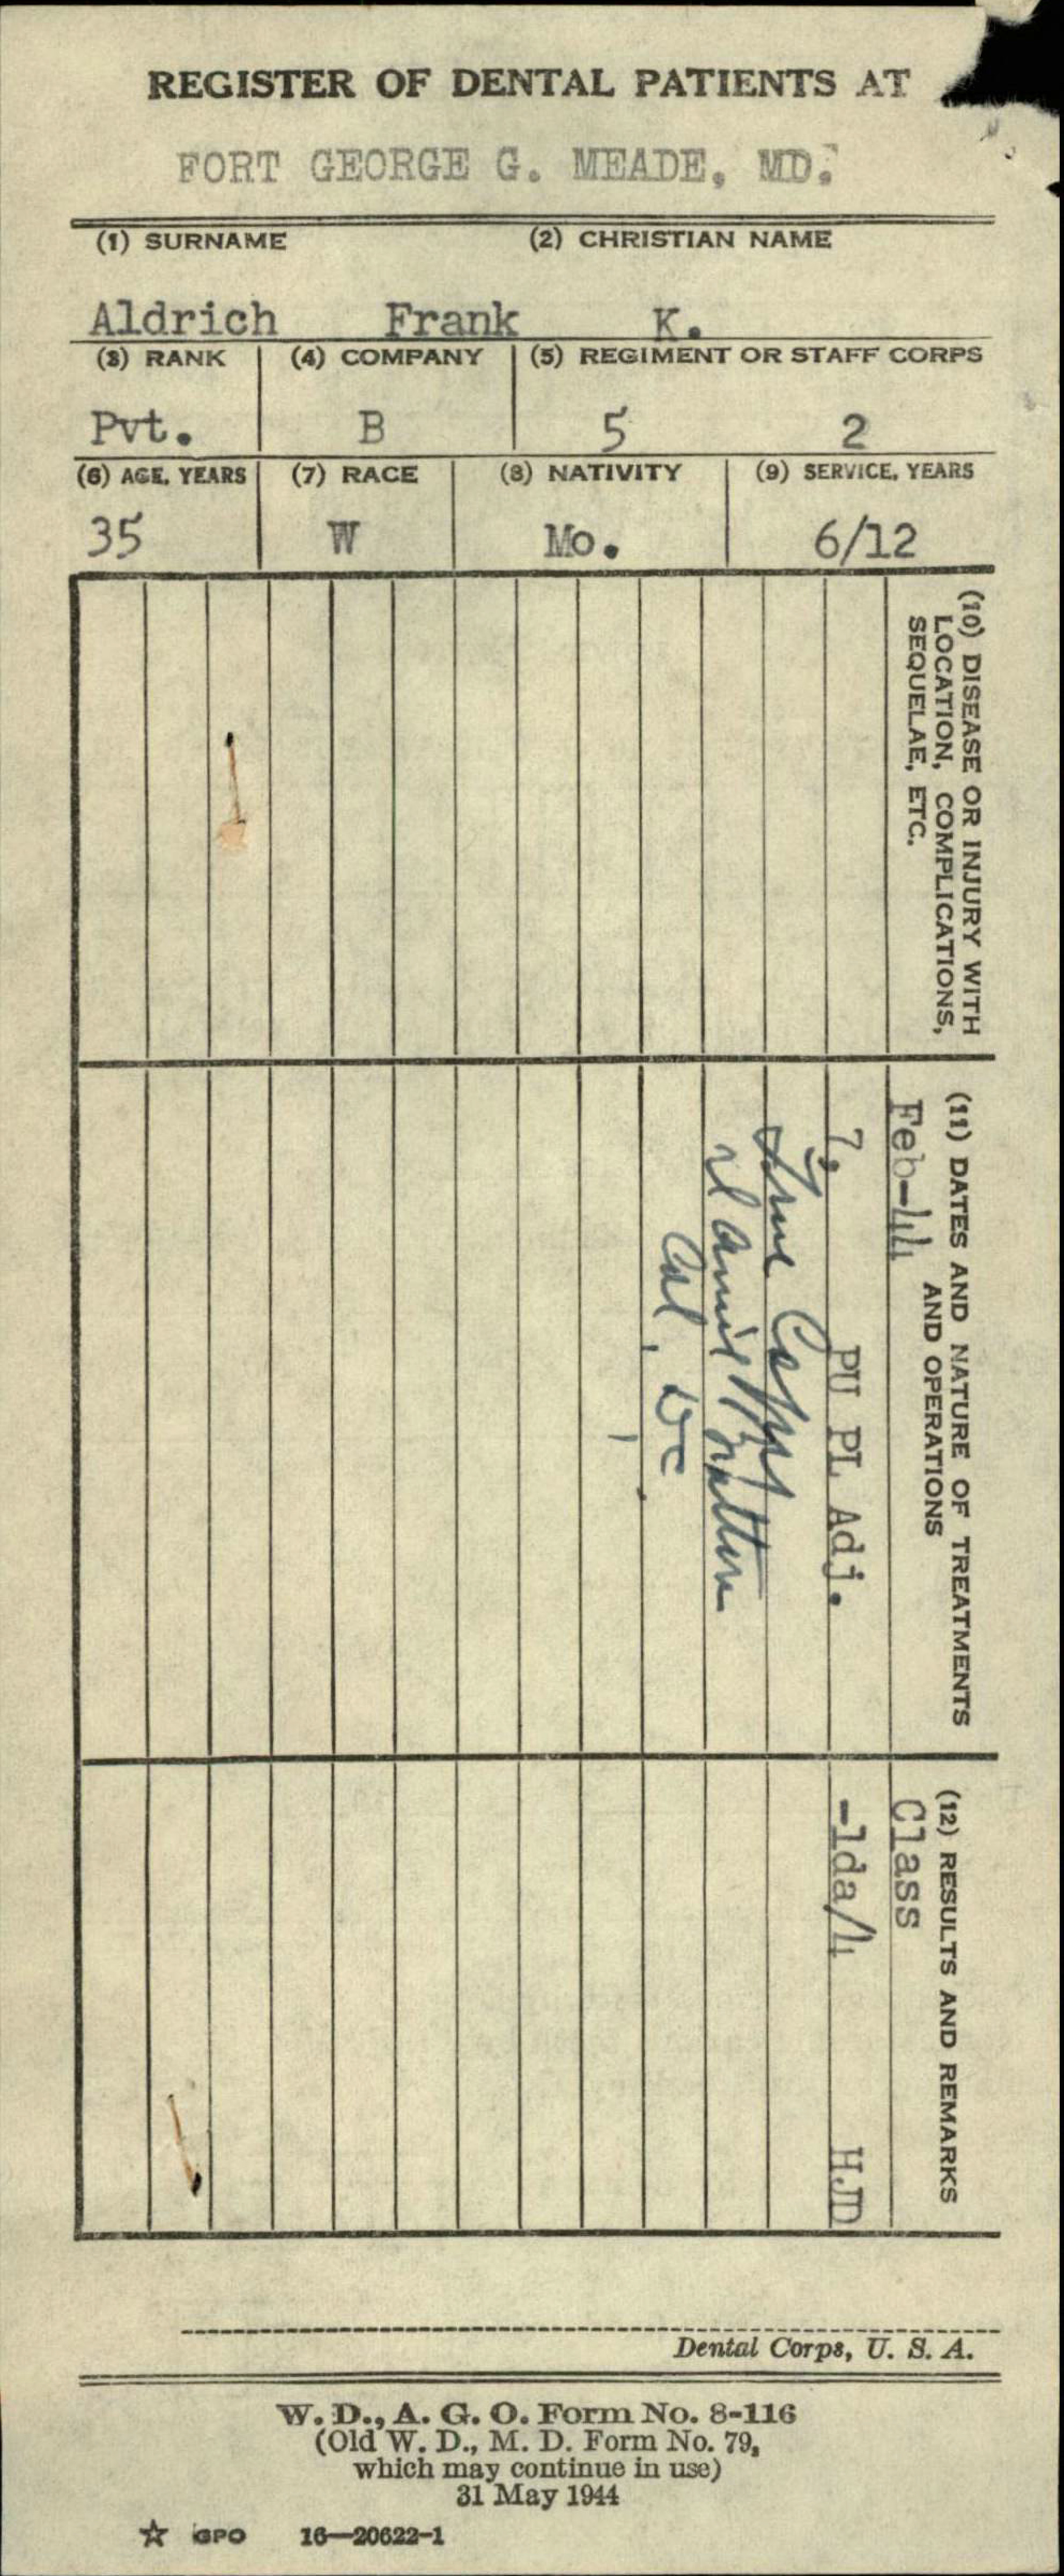 REGISTER OF DENTAL PATIENTS AT
FORT GEORGE G. MEADE, MD.
(1) SURNAME (2) CHRISTIAN NAME
Aldrich Frank K.
(3) RANK (4) COMPANY (5) REGIMENT OR STAFF CORPS
Pvt. B 5 2
(6) AGE, YEARS (7) RACE (8) NATIVITY (9) SERVICE, YEARS
35 W Mo. 6/12
(10) DISEASE OR INJURY WITH
LOCATION, COMPLICATIONS,
SEQUELAE, ETC.
(11) DATES AND NATURE OF TREATMENTS
AND OPERATIONS
Feb-44
7. PU PL Adj.
True Copy
Col. DC
(12) RESULTS AND REMARKS
Class
-1da/4 HJD
Dental Corps, U. S. A.
W. D., A. G. O. Form No. 8-116
(Old W. D., M. D. Form No. 79,
which may continue in use)
31 May 1944
☆ GPO 16—20622-1